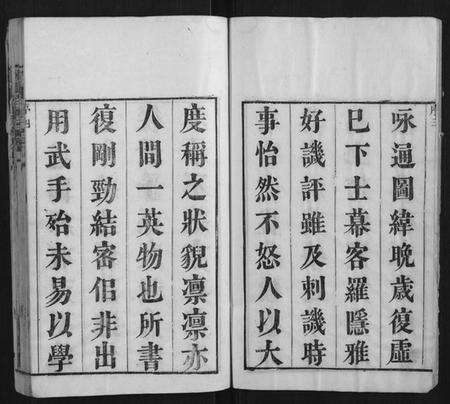 咏通圖緯晚歲復虛
已下士幕客羅隱雅
好譏評雖及刺譏時
事怡然不怒人以大
度稱之狀貌凛凛亦
人間一英物也所書
復剛勁結密侣非出
用武手殆未易以學